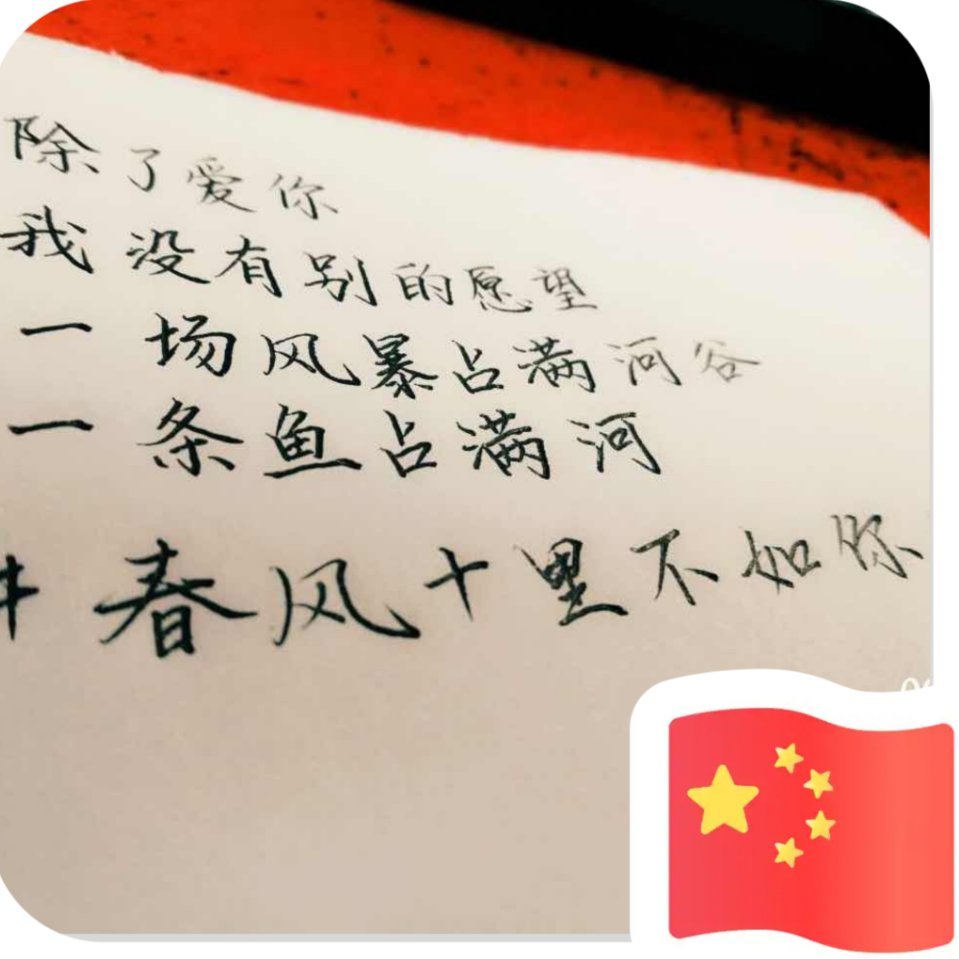 除了爱你
我没有别的愿望
一场风暴占满河谷
一条鱼占满河
#春风十里不如你